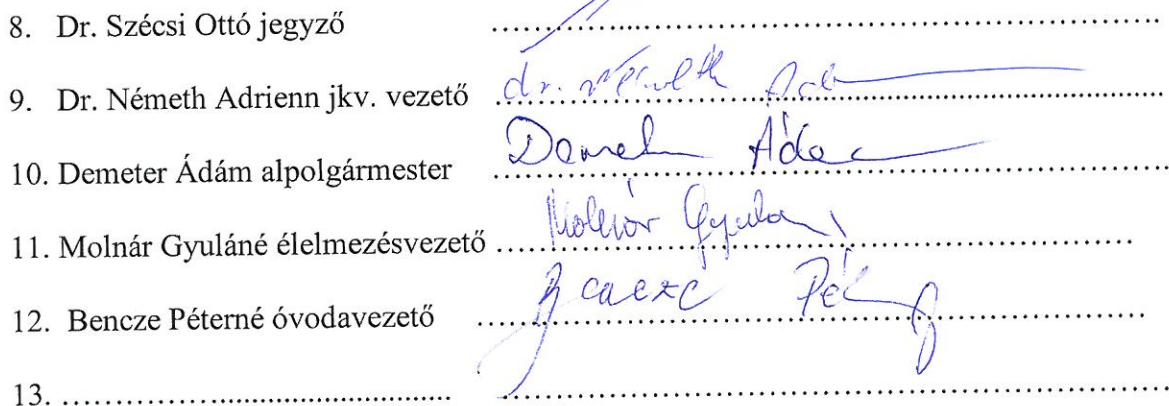 8. Dr. Szécsi Ottó jegyző ..........
9. Dr. Németh Adrienn jkv. vezető dr. Németh Ad
10. Demeter Ádám alpolgármester Demeter Ádám
11. Molnár Gyuláné élelmezésvezető Molnár Gyuláné
12. Bencze Péterné óvodavezető Bencze Pé
13. .......... ..........